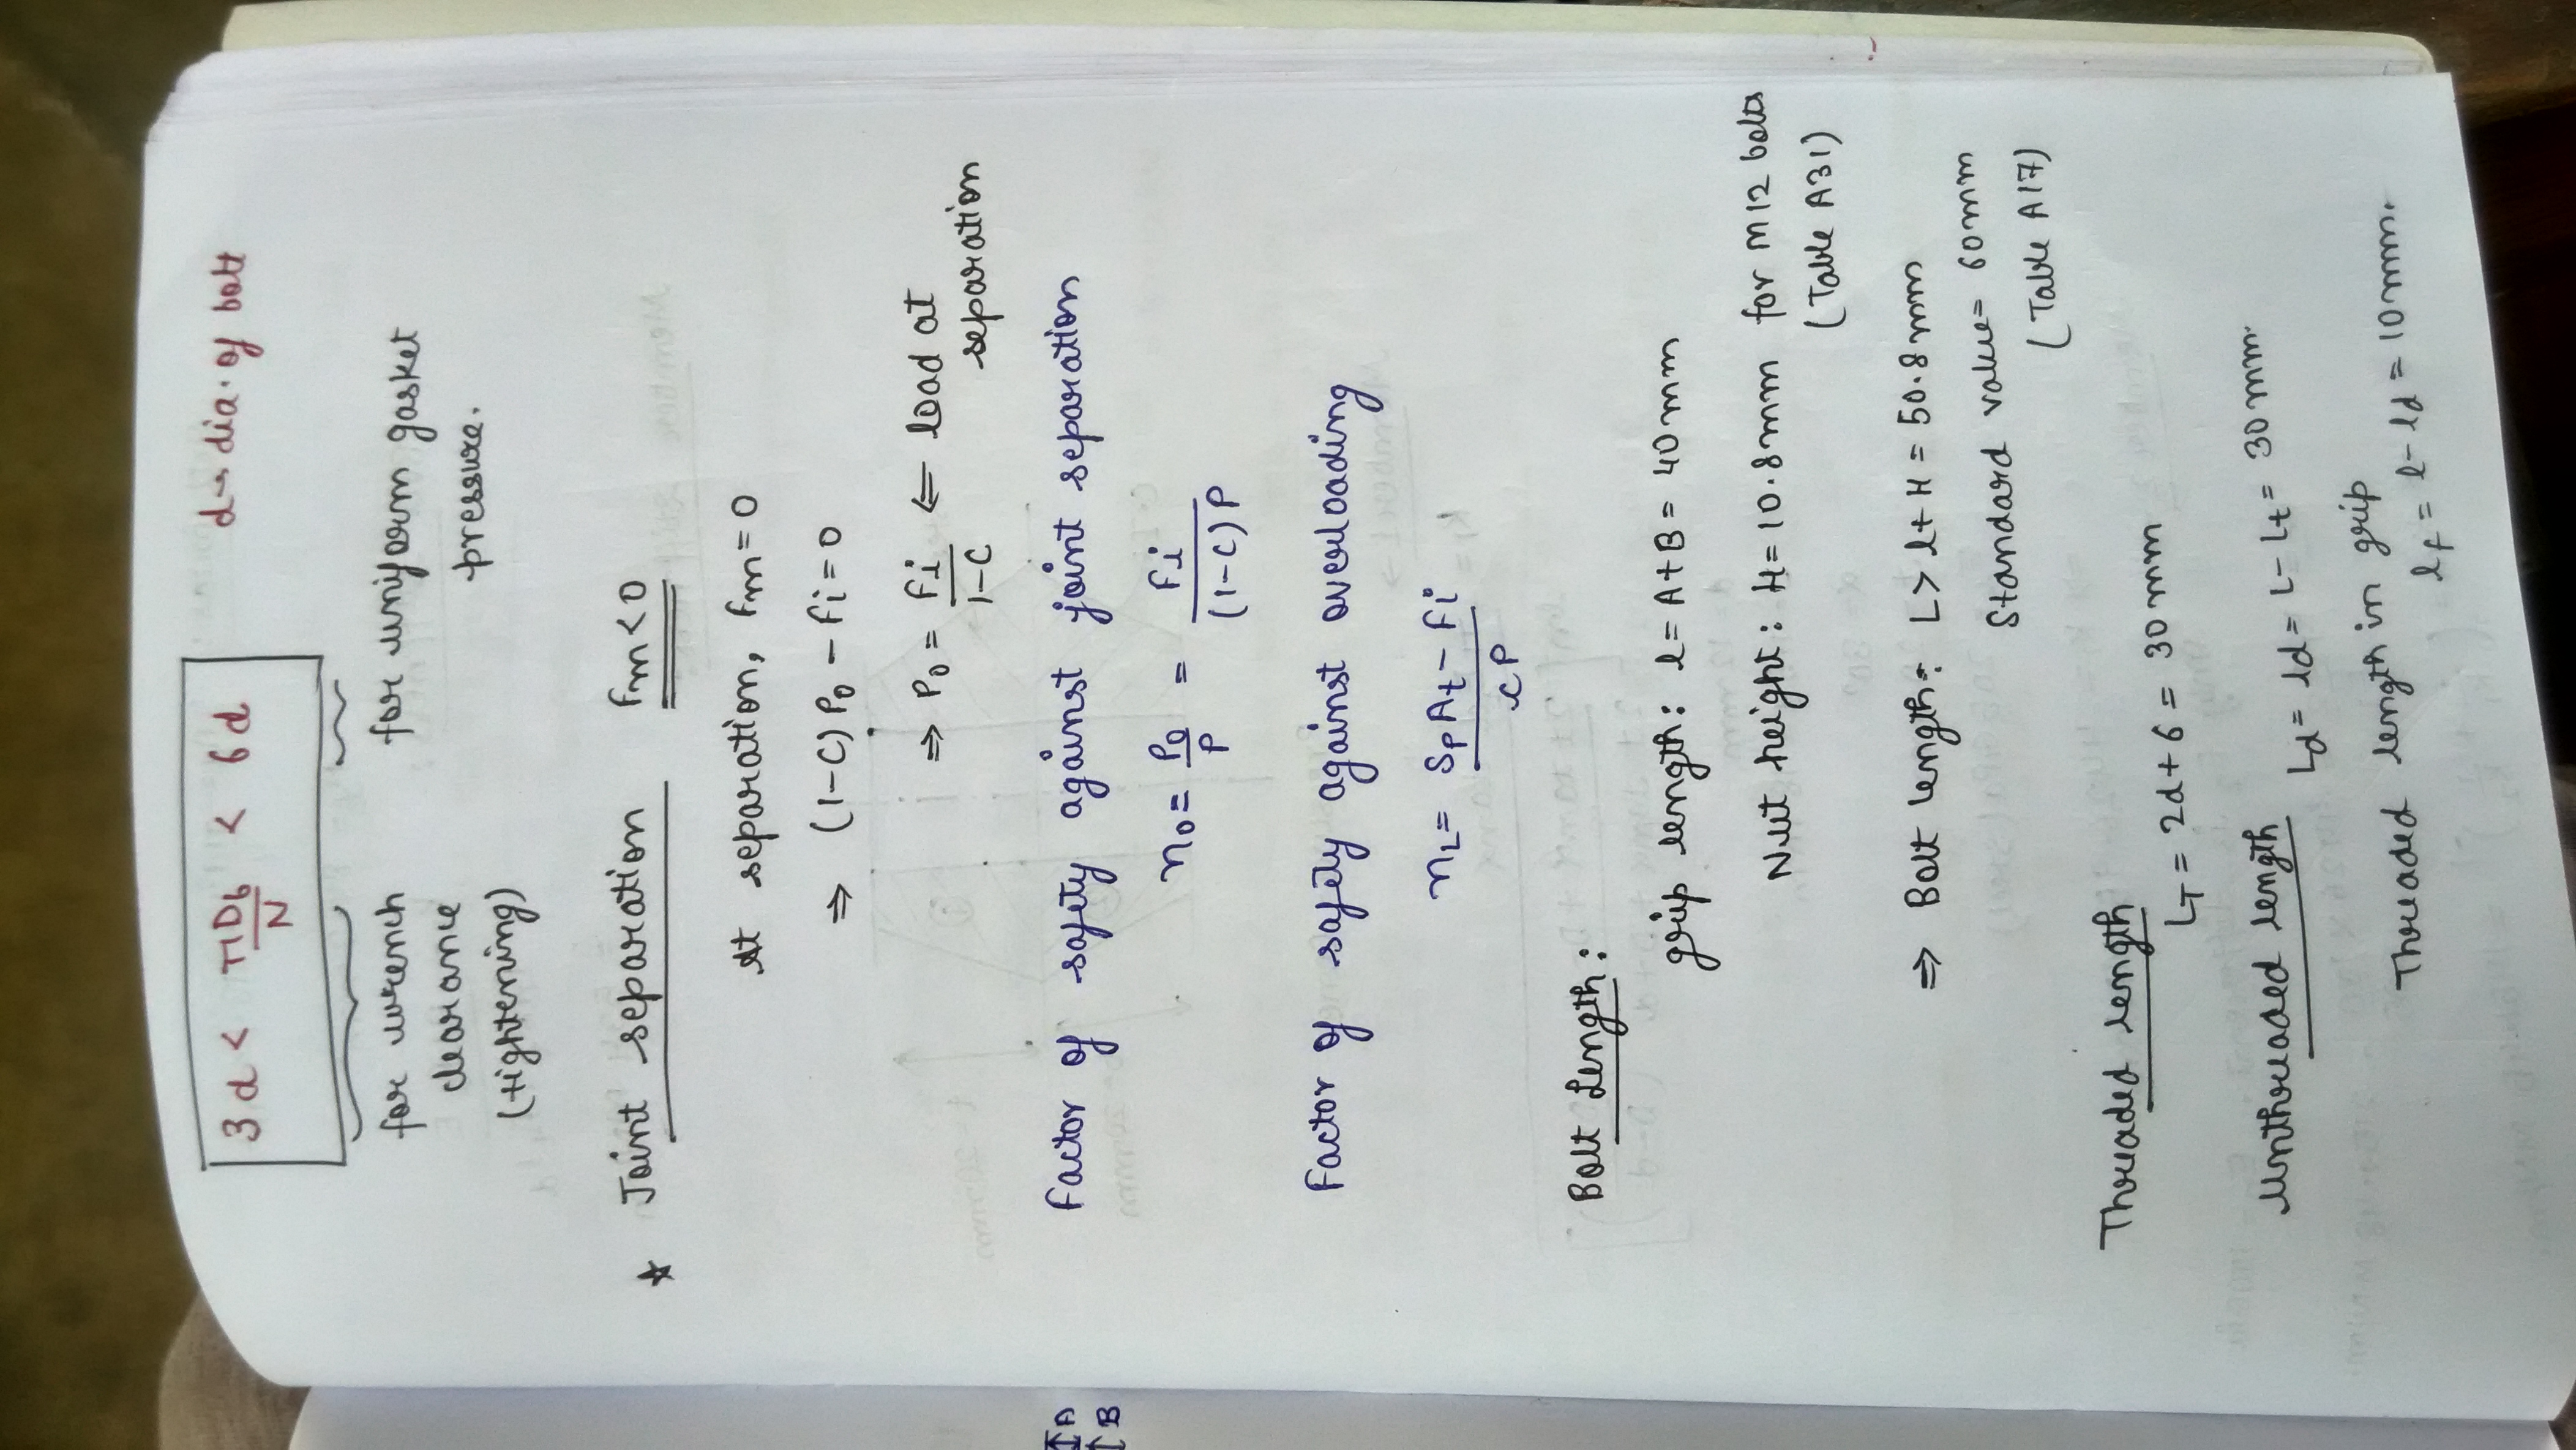 3d < πD_b/N < 6d    d → dia. of bolt
for wrench clearance (tightening)
for uniform gasket pressure.
★ Joint separation    Fm < 0
At separation, Fm = 0
⇒ (1-C) P₀ - Fi = 0
⇒ P₀ = Fi/(1-C) ⇐ load at separation
Factor of safety against joint separation
n₀ = P₀/P = Fi/((1-C)P)
↕A
↑B
Factor of safety against overloading
n_L = (SpAt - Fi)/(CP)
Bolt Length:
grip length: l = A+B = 40mm
Nut height: H = 10.8mm for M12 bolts
(Table A31)
⇒ Bolt length: L > l+H = 50.8mm
Standard value = 60mm
(Table A17)
Threaded length
L_T = 2d+6 = 30mm
Unthreaded length    Ld = ld = L - Lt = 30mm.
Threaded length in grip
l_t = l - ld = 10mm.